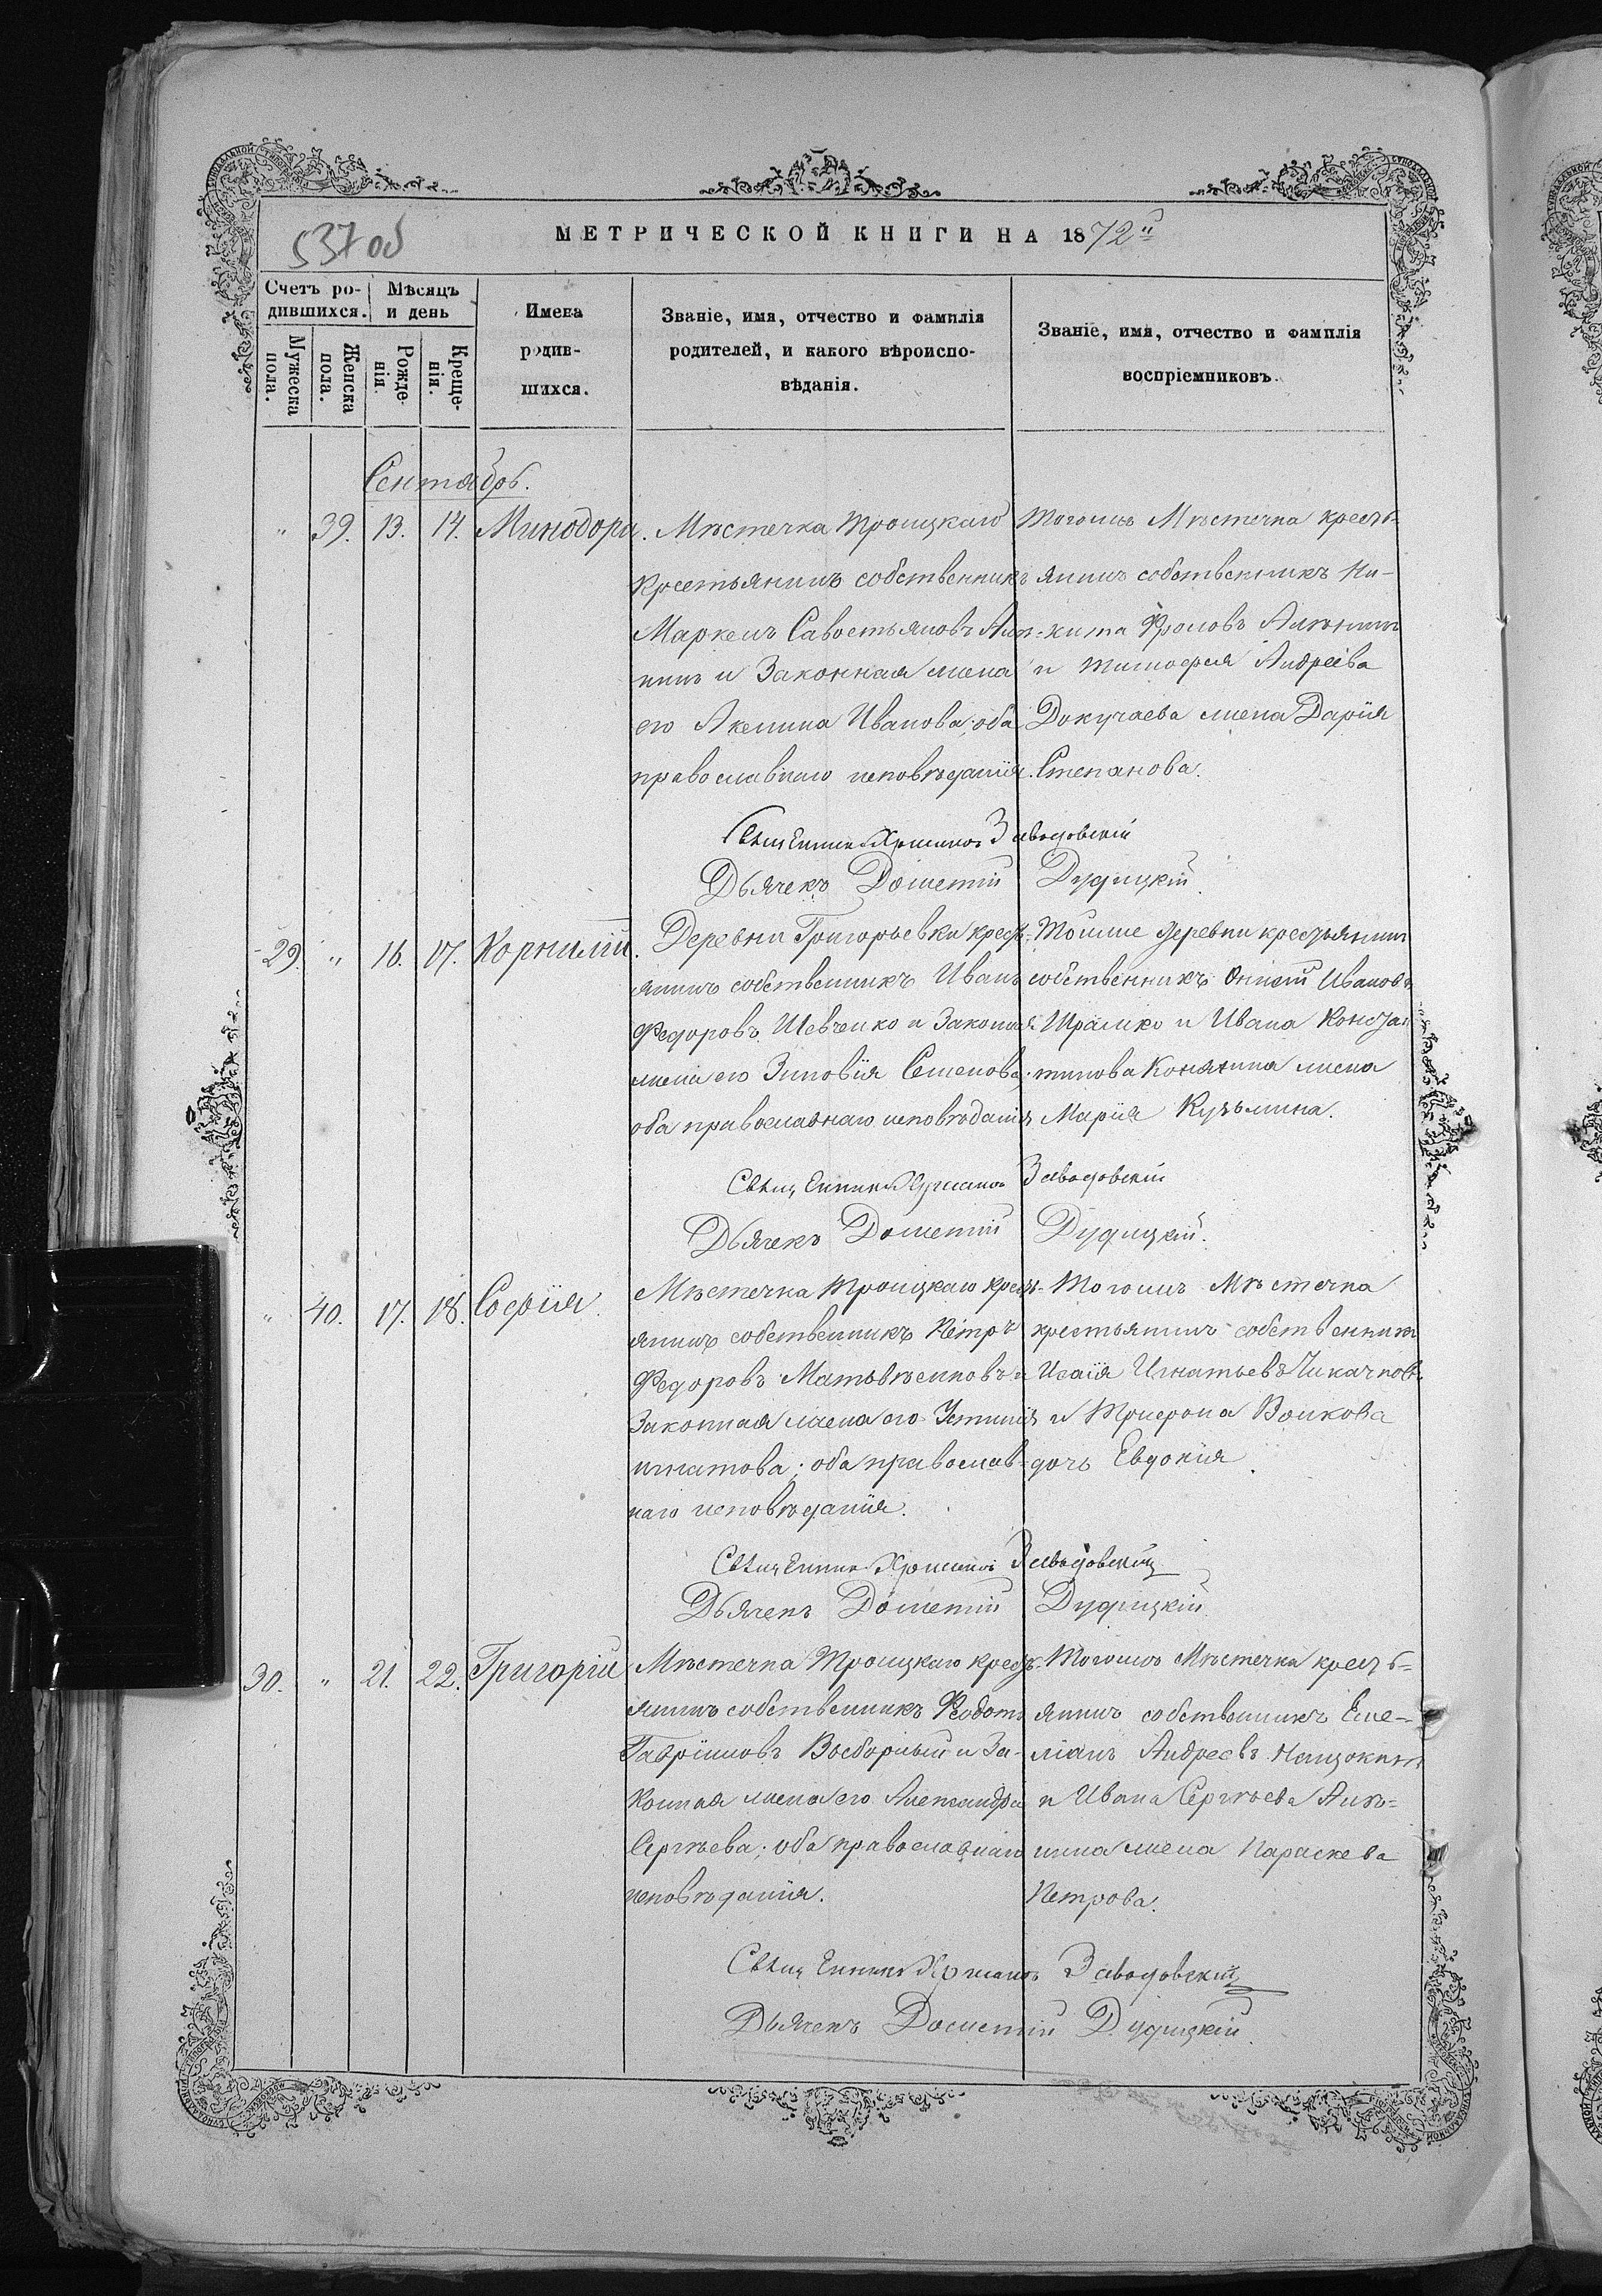 537 об
МЕТРИЧЕСКОЙ КНИГИ НА 1872й
Счетъ ро-
дившихся.
Мужеска
пола.
Женска
пола.
Мѣсяцъ
и день
Рожде-
нія.
Креще-
нія.
Имена
родив-
шихся.
Званіе, имя, отчество и фамилія
родителей, и какого вѣроиспо-
вѣданія.
Званіе, имя, отчество и фамилія
воспріемниковъ.
Сентябрь.
" 39. 13. 14. Минодора.
Мѣстечка Троицкаго
Крестьянинъ собственникъ
Маркелъ Савостьяновъ Алѣ-
нинъ и Законная жена
его Акелина Иванова; оба
православнаго исповѣданія.
Тогожъ Мѣстечка кресть-
янинъ собственникъ Ни-
кита Фроловъ Алѣнинъ
и Тимофея Андреева
Докучаева жена Дарія
Степанова.
Священникъ Завадовскій
Дьячекъ Дометій Дудицкій.
29. " 16. 17. Корнилій.
Деревни Григорьевки кресть-
янинъ собственникъ Иванъ
Федоровъ Шевченко и Законная
жена его Зиновія Семенова;
оба православнаго исповѣданія
Тойже деревни крестьянинъ
собственникъ Ивановъ
Шрамко и Ивана Констан-
тинова Конянина жена
Марія Кузьмина.
Священникъ Завадовскій
Дьячекъ Дометій Дудицкій.
" 40. 17. 18. Софія.
Мѣстечка Троицкаго кресть-
янинъ собственникъ Петръ
Федоровъ Матвѣенковъ и
Законная жена его Устинія
Игнатова; оба православ-
наго исповѣданія.
Тогожъ Мѣстечка
крестьянинъ собственникъ
Исаія Игнатьевъ
и Трифона Волкова
дочь Евдокія.
Священникъ Завадовскій
Дьячекъ Дометій Дудицкій.
30. " 21. 22. Григорій
Мѣстечка Троицкаго кресть-
янинъ собственникъ Феодотъ
Гавріиловъ Выборный и За-
конная жена его Александра
Сергѣева; оба православнаго
исповѣданія.
Тогожъ Мѣстечка кресть-
янинъ собственникъ Еме-
ліанъ Андреевъ Нащокинъ
и Ивана Сергѣева Алѣ-
нина жена Параскева
Петрова.
Священникъ Завадовскій
Дьячекъ Дометій Дудицкій.